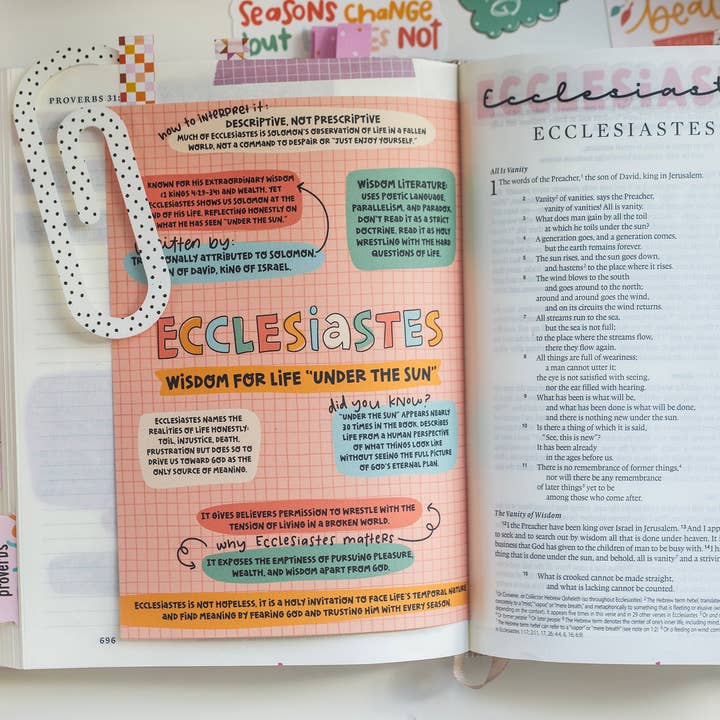 SEASONS CHANGE
but
NOT
PROVERBS 31:
how to interpret it:
DESCRIPTIVE, NOT PRESCRIPTIVE
MUCH OF ECCLESIASTES IS SOLOMON'S OBSERVATION OF LIFE IN A FALLEN
WORLD, NOT A COMMAND TO DESPAIR OR "JUST ENJOY YOURSELF."
KNOWN FOR HIS EXTRAORDINARY WISDOM
(1 KINGS 4:29-34) AND WEALTH, YET
ECCLESIASTES SHOWS US SOLOMON AT THE
END OF HIS LIFE, REFLECTING HONESTLY ON
WHAT HE HAS SEEN "UNDER THE SUN."
written by:
TRADITIONALLY ATTRIBUTED TO SOLOMON,
SON OF DAVID, KING OF ISRAEL.
WISDOM LITERATURE:
USES POETIC LANGUAGE,
PARALLELISM, AND PARADOX.
DON'T READ IT AS A STRICT
DOCTRINE. READ IT AS HOLY
WRESTLING WITH THE HARD
QUESTIONS OF LIFE.
ECCLESIASTES
WISDOM FOR LIFE "UNDER THE SUN"
ECCLESIASTES NAMES THE
REALITIES OF LIFE HONESTLY:
TOIL, INJUSTICE, DEATH,
FRUSTRATION BUT DOES SO TO
DRIVE US TOWARD GOD AS THE
ONLY SOURCE OF MEANING.
did you know?
"UNDER THE SUN" APPEARS NEARLY
30 TIMES IN THE BOOK. DESCRIBES
LIFE FROM A HUMAN PERSPECTIVE
OF WHAT THINGS LOOK LIKE
WITHOUT SEEING THE FULL PICTURE
OF GOD'S ETERNAL PLAN.
IT GIVES BELIEVERS PERMISSION TO WRESTLE WITH THE
TENSION OF LIVING IN A BROKEN WORLD.
why Ecclesiastes matters
IT EXPOSES THE EMPTINESS OF PURSUING PLEASURE,
WEALTH, AND WISDOM APART FROM GOD.
ECCLESIASTES IS NOT HOPELESS, IT IS A HOLY INVITATION TO FACE LIFE'S TEMPORAL NATURE
AND FIND MEANING BY FEARING GOD AND TRUSTING HIM WITH EVERY SEASON.
proverbs
696
ECCLESIAST
Ecclesiast
ECCLESIASTES
All Is Vanity
1 The words of the Preacher,¹ the son of David, king in Jerusalem.
2 Vanity² of vanities, says the Preacher,
vanity of vanities! All is vanity.
3 What does man gain by all the toil
at which he toils under the sun?
4 A generation goes, and a generation comes,
but the earth remains forever.
5 The sun rises, and the sun goes down,
and hastens³ to the place where it rises.
6 The wind blows to the south
and goes around to the north;
around and around goes the wind,
and on its circuits the wind returns.
7 All streams run to the sea,
but the sea is not full;
to the place where the streams flow,
there they flow again.
8 All things are full of weariness;
a man cannot utter it;
the eye is not satisfied with seeing,
nor the ear filled with hearing.
9 What has been is what will be,
and what has been done is what will be done,
and there is nothing new under the sun.
10 Is there a thing of which it is said,
"See, this is new"?
It has been already
in the ages before us.
11 There is no remembrance of former things,⁴
nor will there be any remembrance
of later things⁵ yet to be
among those who come after.
The Vanity of Wisdom
12 I the Preacher have been king over Israel in Jerusalem. 13 And I app
to seek and to search out by wisdom all that is done under heaven. It i
business that God has given to the children of man to be busy with. 14 I h
thing that is done under the sun, and behold, all is vanity⁷ and a strivin
15 What is crooked cannot be made straight,
and what is lacking cannot be counted.